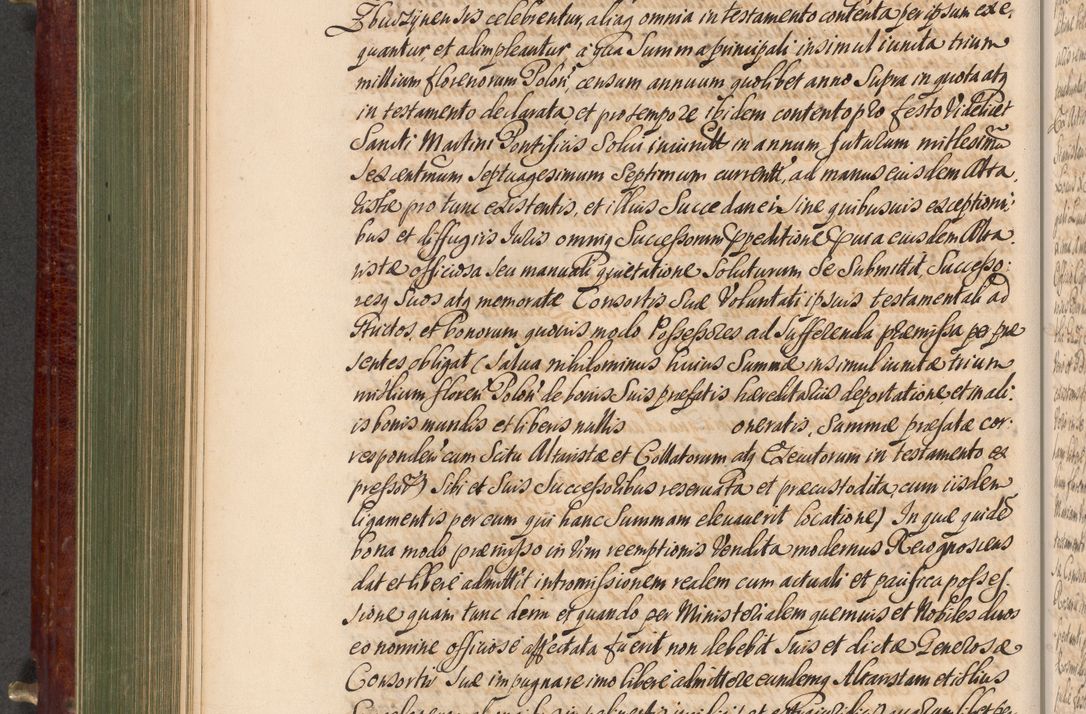 Zbuszynensis celebrentur, aliaq omnia in testamento contenta per ipsum exe.
quantur, et alimpleantur, a qua Summa principali insimul iunita trium
millium florenorum Polon, censum annuum quolibet anno Supra in quota atq
in testamento declarata, et pro tempore ibidem contento pro festo videlicet
Sancti Martini Pontificis Solui in annum futurum millesimũ
Sexcentmum Septuagesimum Septimum currenti, ad manus eiusdem Alta
ristæ pro tunc existentis, et illius Succedanei Sine quibusuis exceptioni
bus et diffugiis Iuris omniq Successorum peditione pura eiusdem Alta.
ristæ officiosa seu manuali quietatione Soluturum Se Submittit, Successo:
resq Suos atq memoratæ Consortis Suæ Voluntati ipsius testamentali ad
strictos, et bonorum quouis modo Possessores ad Sufferenda præmissa per præ
sentes obligat (Salua nihilominus huius Summæ insimul iunitæ trium
millium floren Polon de bonis Suis præfatis hæreditariis deportatione, et in ali:
is bonis mundis et liberis nullis oneratis, Summæ præfatæ cor:
responden cum Scitu Altaristæ et Collatorum atq Executorum in testamento ex
presso⁊) Sibi et Suis Successoribus reseruata et præcustodita, cum iisdem
ligamentis per eum qui hanc Summam eleuauerit locatione) In quæ quidẽ
bona modo præmisso in vim reemptionis Vendita modernus Recognoscens
dat et libere admittit intromissionem realem cum actuali et pacifica posses
sione quam tunc dum et quando per Ministerialem quemuis et Nobiles duos
eo nomine officiose affectata fuerit non debebit Suis et dictæ Generosæ
Consortis Suæ impugnare imo libere admittere eundemq Altaristam et illius